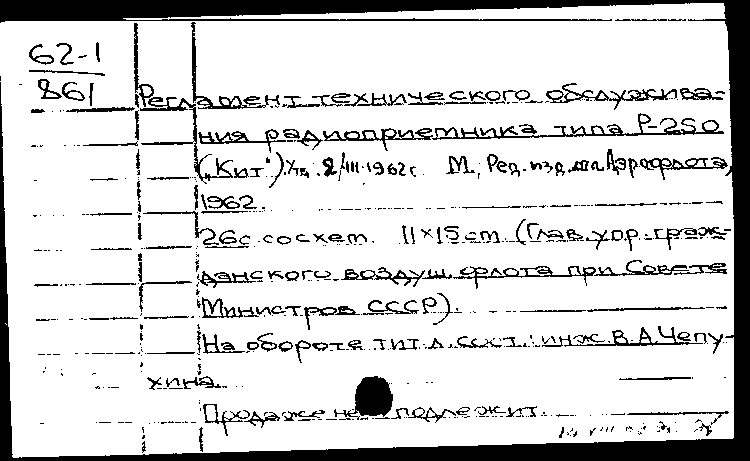 62-1
861
Регламент технического обслужива=
ния радиоприемника типа Р-250
("Кит"). Утв. 2/III-1962г М., Ред. изд. отд. Аэрофлота,
1962.
26с. со схем. 11×15 cm (Глав. упр. граж-
данского воздуш. флота при Совете
Министров СССР).
На обороте тит. л. сост.: инж. В.А. Чепу-
хина.
Продаже не подлежит.